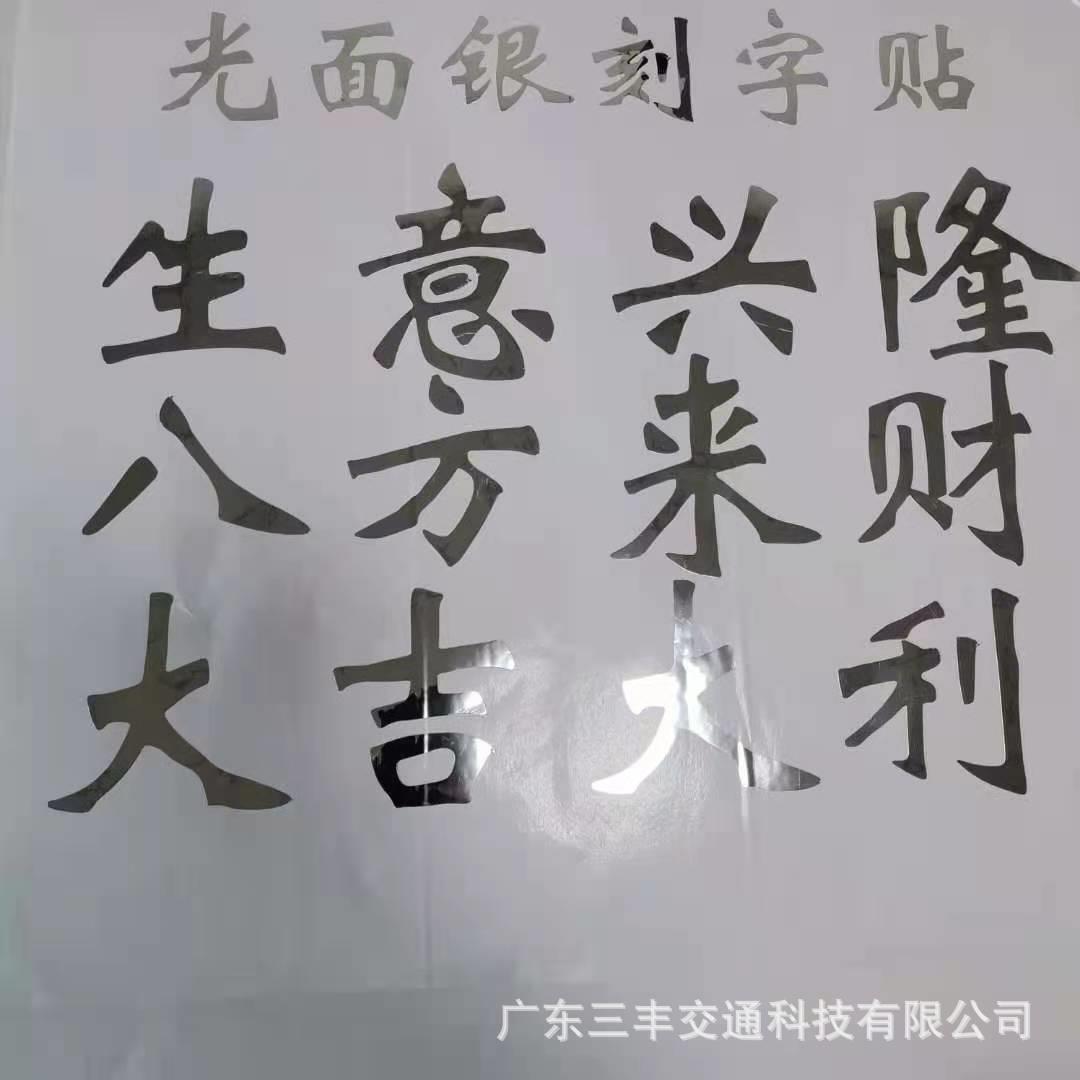 光面银刻字贴
生意兴隆
八方来财
大吉大利
广东三丰交通科技有限公司